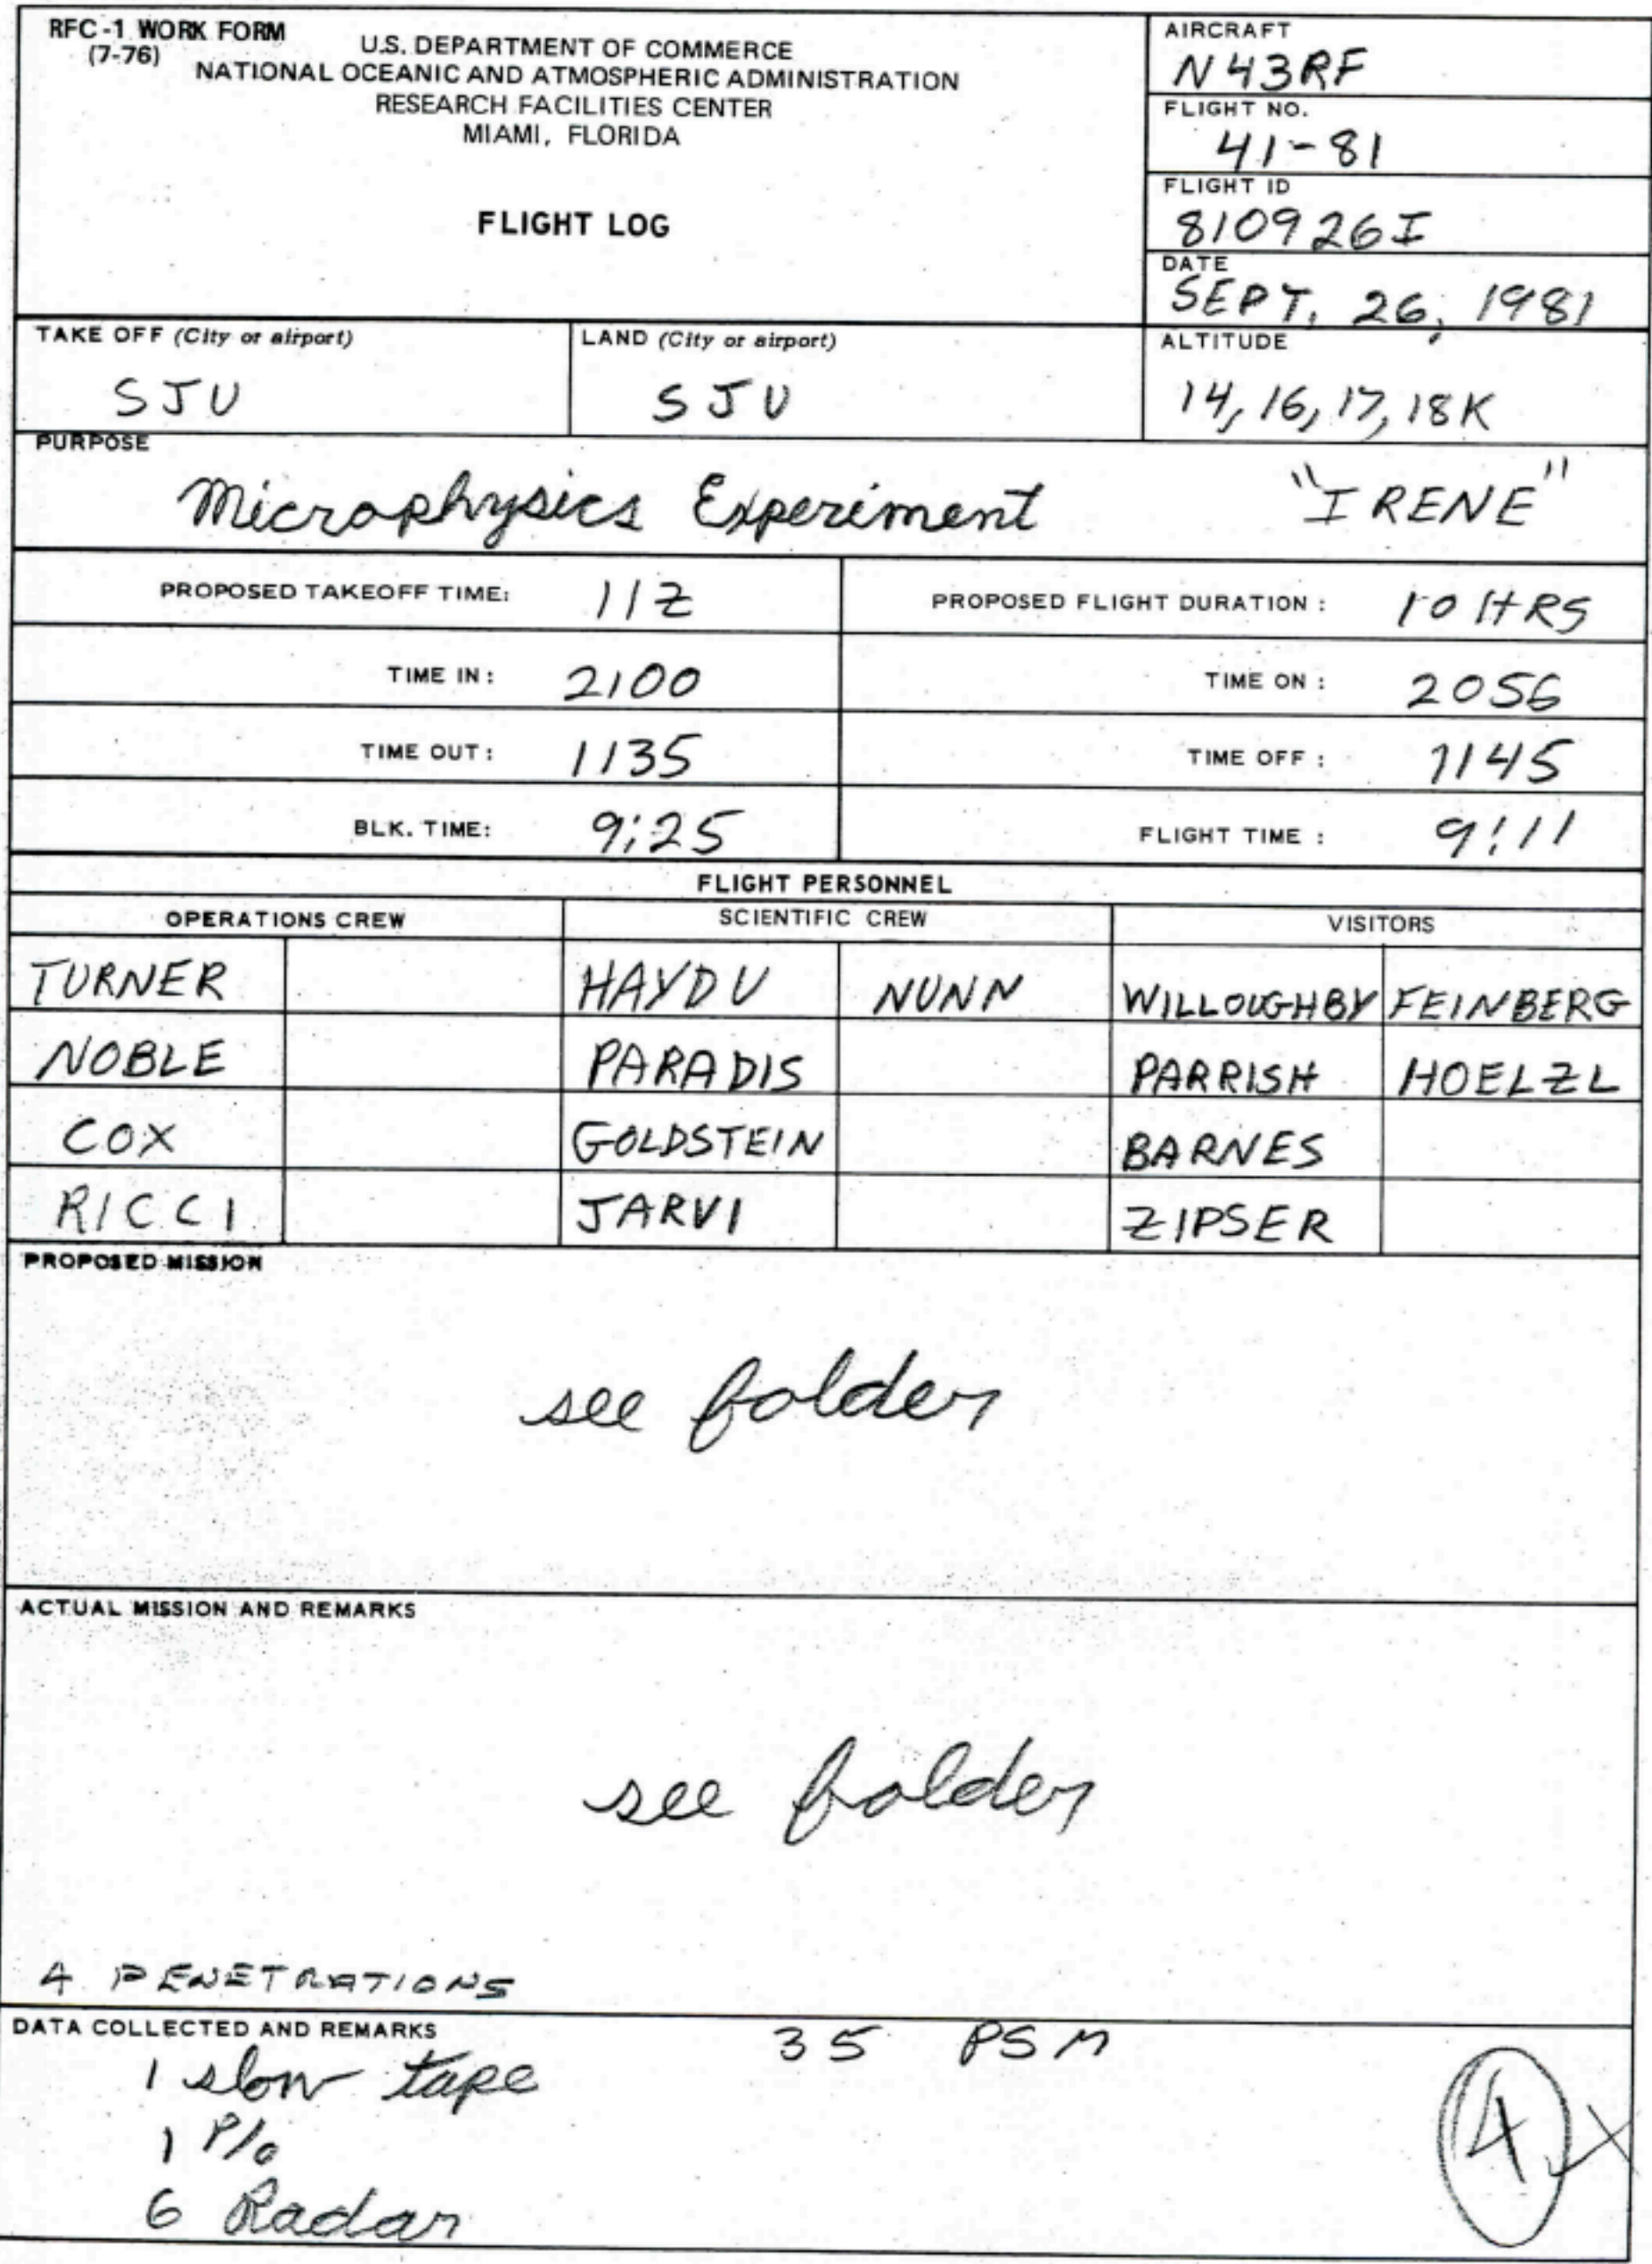 RFC-1 WORK FORM
(7-76)
U.S. DEPARTMENT OF COMMERCE
NATIONAL OCEANIC AND ATMOSPHERIC ADMINISTRATION
RESEARCH FACILITIES CENTER
MIAMI, FLORIDA
FLIGHT LOG
AIRCRAFT
N43RF
FLIGHT NO.
41-81
FLIGHT ID
810926I
DATE
SEPT. 26, 1981
TAKE OFF (City or airport)
SJU
LAND (City or airport)
SJU
ALTITUDE
14, 16, 17, 18K
PURPOSE
Microphysics Experiment "IRENE"
PROPOSED TAKEOFF TIME: 11Z
PROPOSED FLIGHT DURATION: 10 HRS
TIME IN: 2100
TIME ON: 2056
TIME OUT: 1135
TIME OFF: 1145
BLK. TIME: 9:25
FLIGHT TIME: 9:11
FLIGHT PERSONNEL
OPERATIONS CREW SCIENTIFIC CREW VISITORS
TURNER HAYDU NUNN WILLOUGHBY FEINBERG
NOBLE PARADIS PARRISH HOELZL
COX GOLDSTEIN BARNES
RICCI JARVI ZIPSER
PROPOSED MISSION
see folder
ACTUAL MISSION AND REMARKS
see folder
4 PENETRATIONS
DATA COLLECTED AND REMARKS
35 PSM
1 slow tape
1 P/o
6 Radar
4